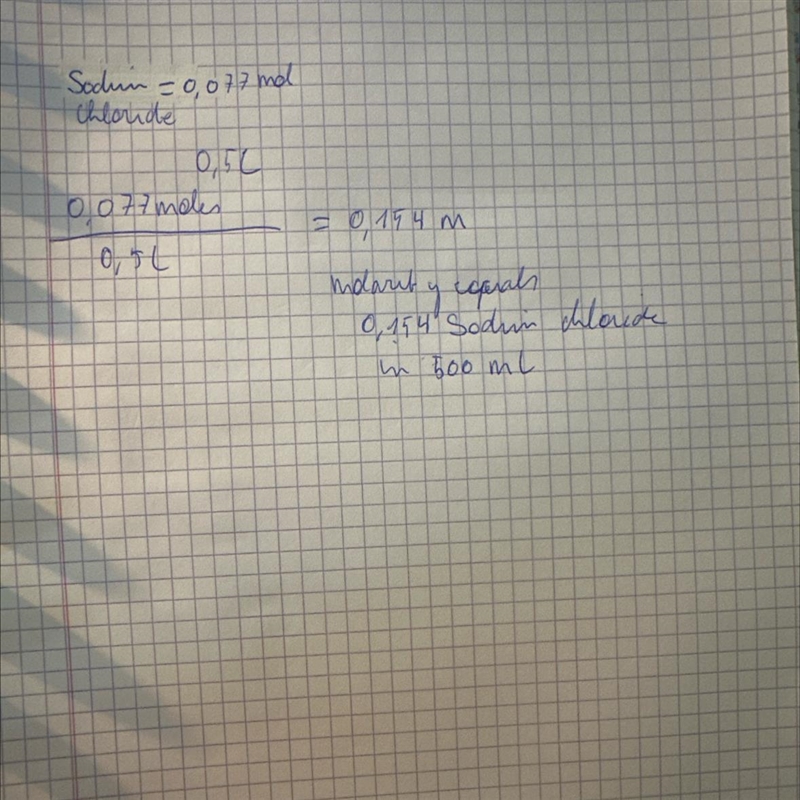 Sodium = 0,077 mol
chloride
0,5L
0,077 moles
0,5L
= 0,154 M
molarity equals
0,154 Sodium chloride
in 500 mL